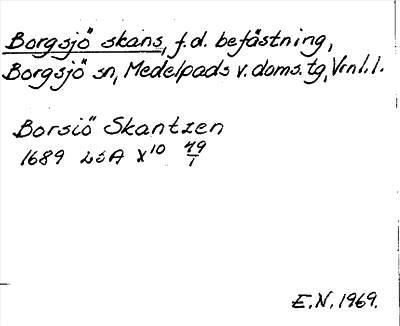 Borgsjö skans, f.d. befästning,
Borgsjö sn, Medelpads v. doms. tg, Vrnl. l.
Borsiö Skantzen
1689 LSA X10 49/1
E.N. 1969.